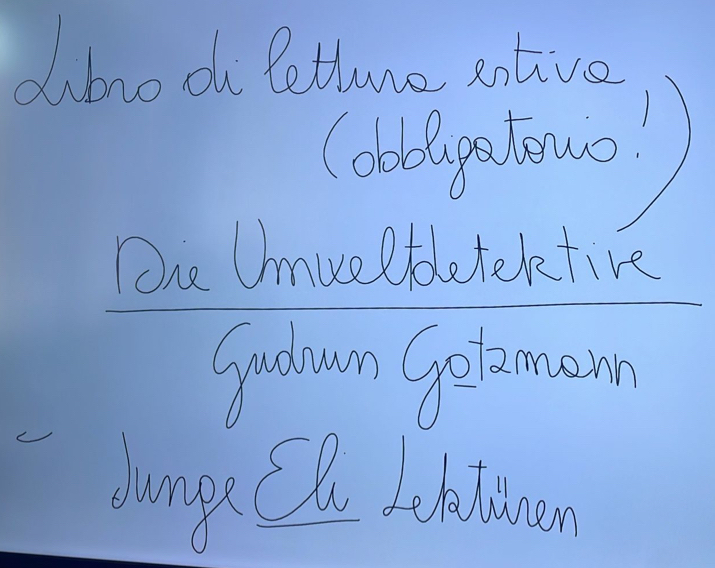 Libro di lettura estiva
(obbligatorio!)
Die Umweltdetektive
Gudrun Gotzmann
Junge Eli Lektüren